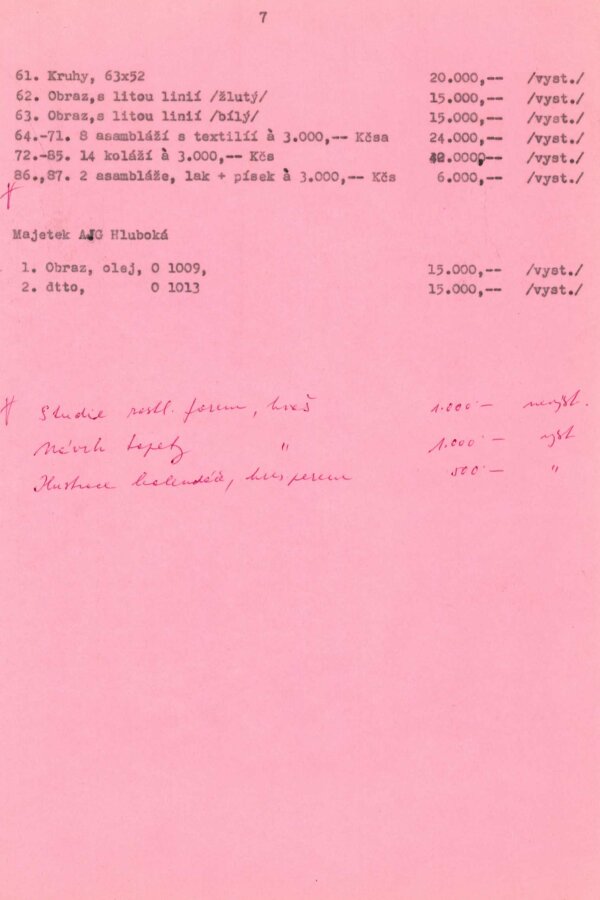 7
61. Kruhy, 63x52 20.000,-- /vyst./
62. Obraz,s litou linií /žlutý/ 15.000,-- /vyst./
63. Obraz,s litou linií /bílý/ 15.000,-- /vyst./
64.-71. 8 asambláží s textilií à 3.000,-- Kčsa 24.000,-- /vyst./
72.-85. 14 koláží à 3.000,-- Kčs 42.000,-- /vyst./
86.,87. 2 asambláže, lak + písek à 3.000,-- Kčs 6.000,-- /vyst./
Majetek AJG Hluboká
1. Obraz, olej, O 1009, 15.000,-- /vyst./
2. dtto, O 1013 15.000,-- /vyst./
Studie rostl. forem, 1.000 — nevyst.
Návrh tapety " 1.000 — vyst
Ilustrace kalendáře, 500 — "